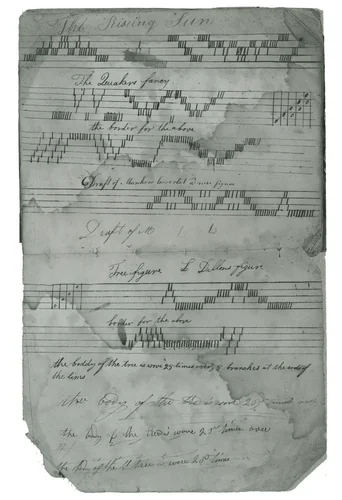 The Rising Sun
The Quakers fancy
the border for the above
Draft of new figure
Draft of M
Tree figure figure
border for the above
the boddy of the tree is wove 28 times over, & branches at the end of
the times
the body of the tree is wove 28 over
the body of the tree is wove 28 times over
the body of the tree is wove 28 times